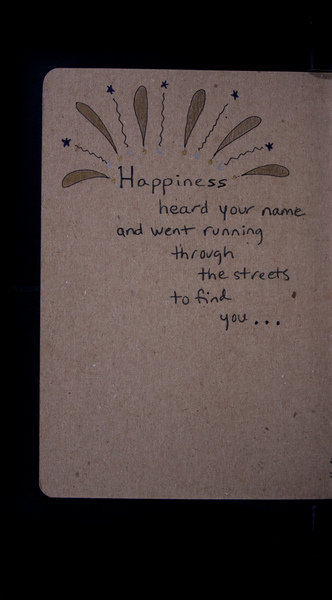 Happiness
heard your name
and went running
through
the streets
to find
you...